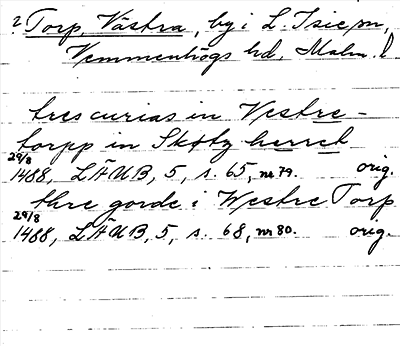 ? Torp, Västra, by i L. Isie sn,
Vemmenhögs hd, Malm. l
tres curias in Vestre-
torpp in Skøtz herret
29/8
1488, LÄUB, 5, s. 65, nr 79. orig.
thre gorde i Westre Torp
29/8
1488, LÄUB, 5, s. 68, nr 80. orig.